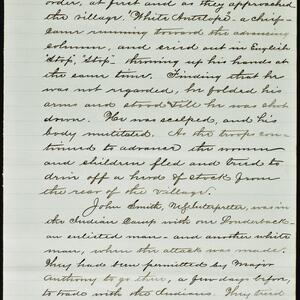 order, at first and as they approached
the village. "White Antelope" a chief-
came running toward the advancing
column, and cried out in English
"Stop", "Stop" - throwing up his hands at
the same time. Finding that he
was not regarded, he folded his
arms and stood still till he was shot
down. He was scalped, and his
body mutilated. As the troops con-
tinued to advance the women
and children fled and tried to
drive off a herd of stock from
the rear of the village.
John Smith, U.S. Interpreter, was in
the Indian Camp with one Louderback
an enlisted man - and another white
man, when the attack was made.
They had been permitted by Major
Anthony to go there, a few days before,
to trade with the Indians. They tried